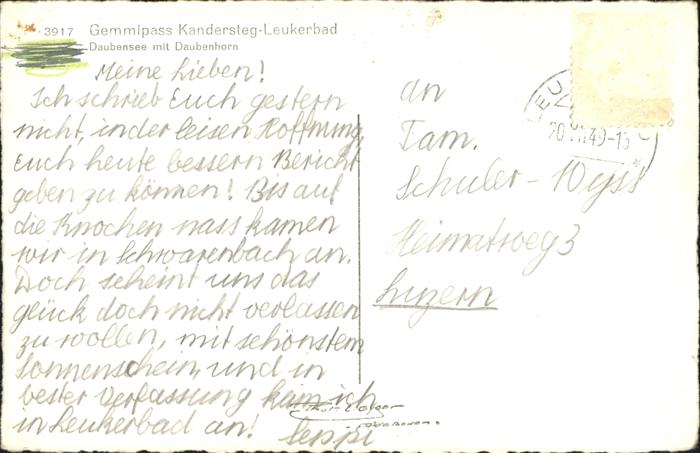 3917 Gemmipass Kandersteg-Leukerbad
Daubensee mit Daubenhorn
Meine Lieben!
Ich schrieb Euch gestern
nicht, in der leisen Hoffnung,
Euch heute bessern Bericht
geben zu können! Bis auf
die Knochen nass kamen
wir in Schwarenbach an.
Doch scheint uns das
glück doch nicht verlassen
zu wollen, mit schönstem
Sonnenschein, und in
bester Verfassung kam ich
in Leukerbad an! Seppi
an
Fam.
Schuler-Wyss
Heimatweg 3
Luzern
LEU
20. 49-15